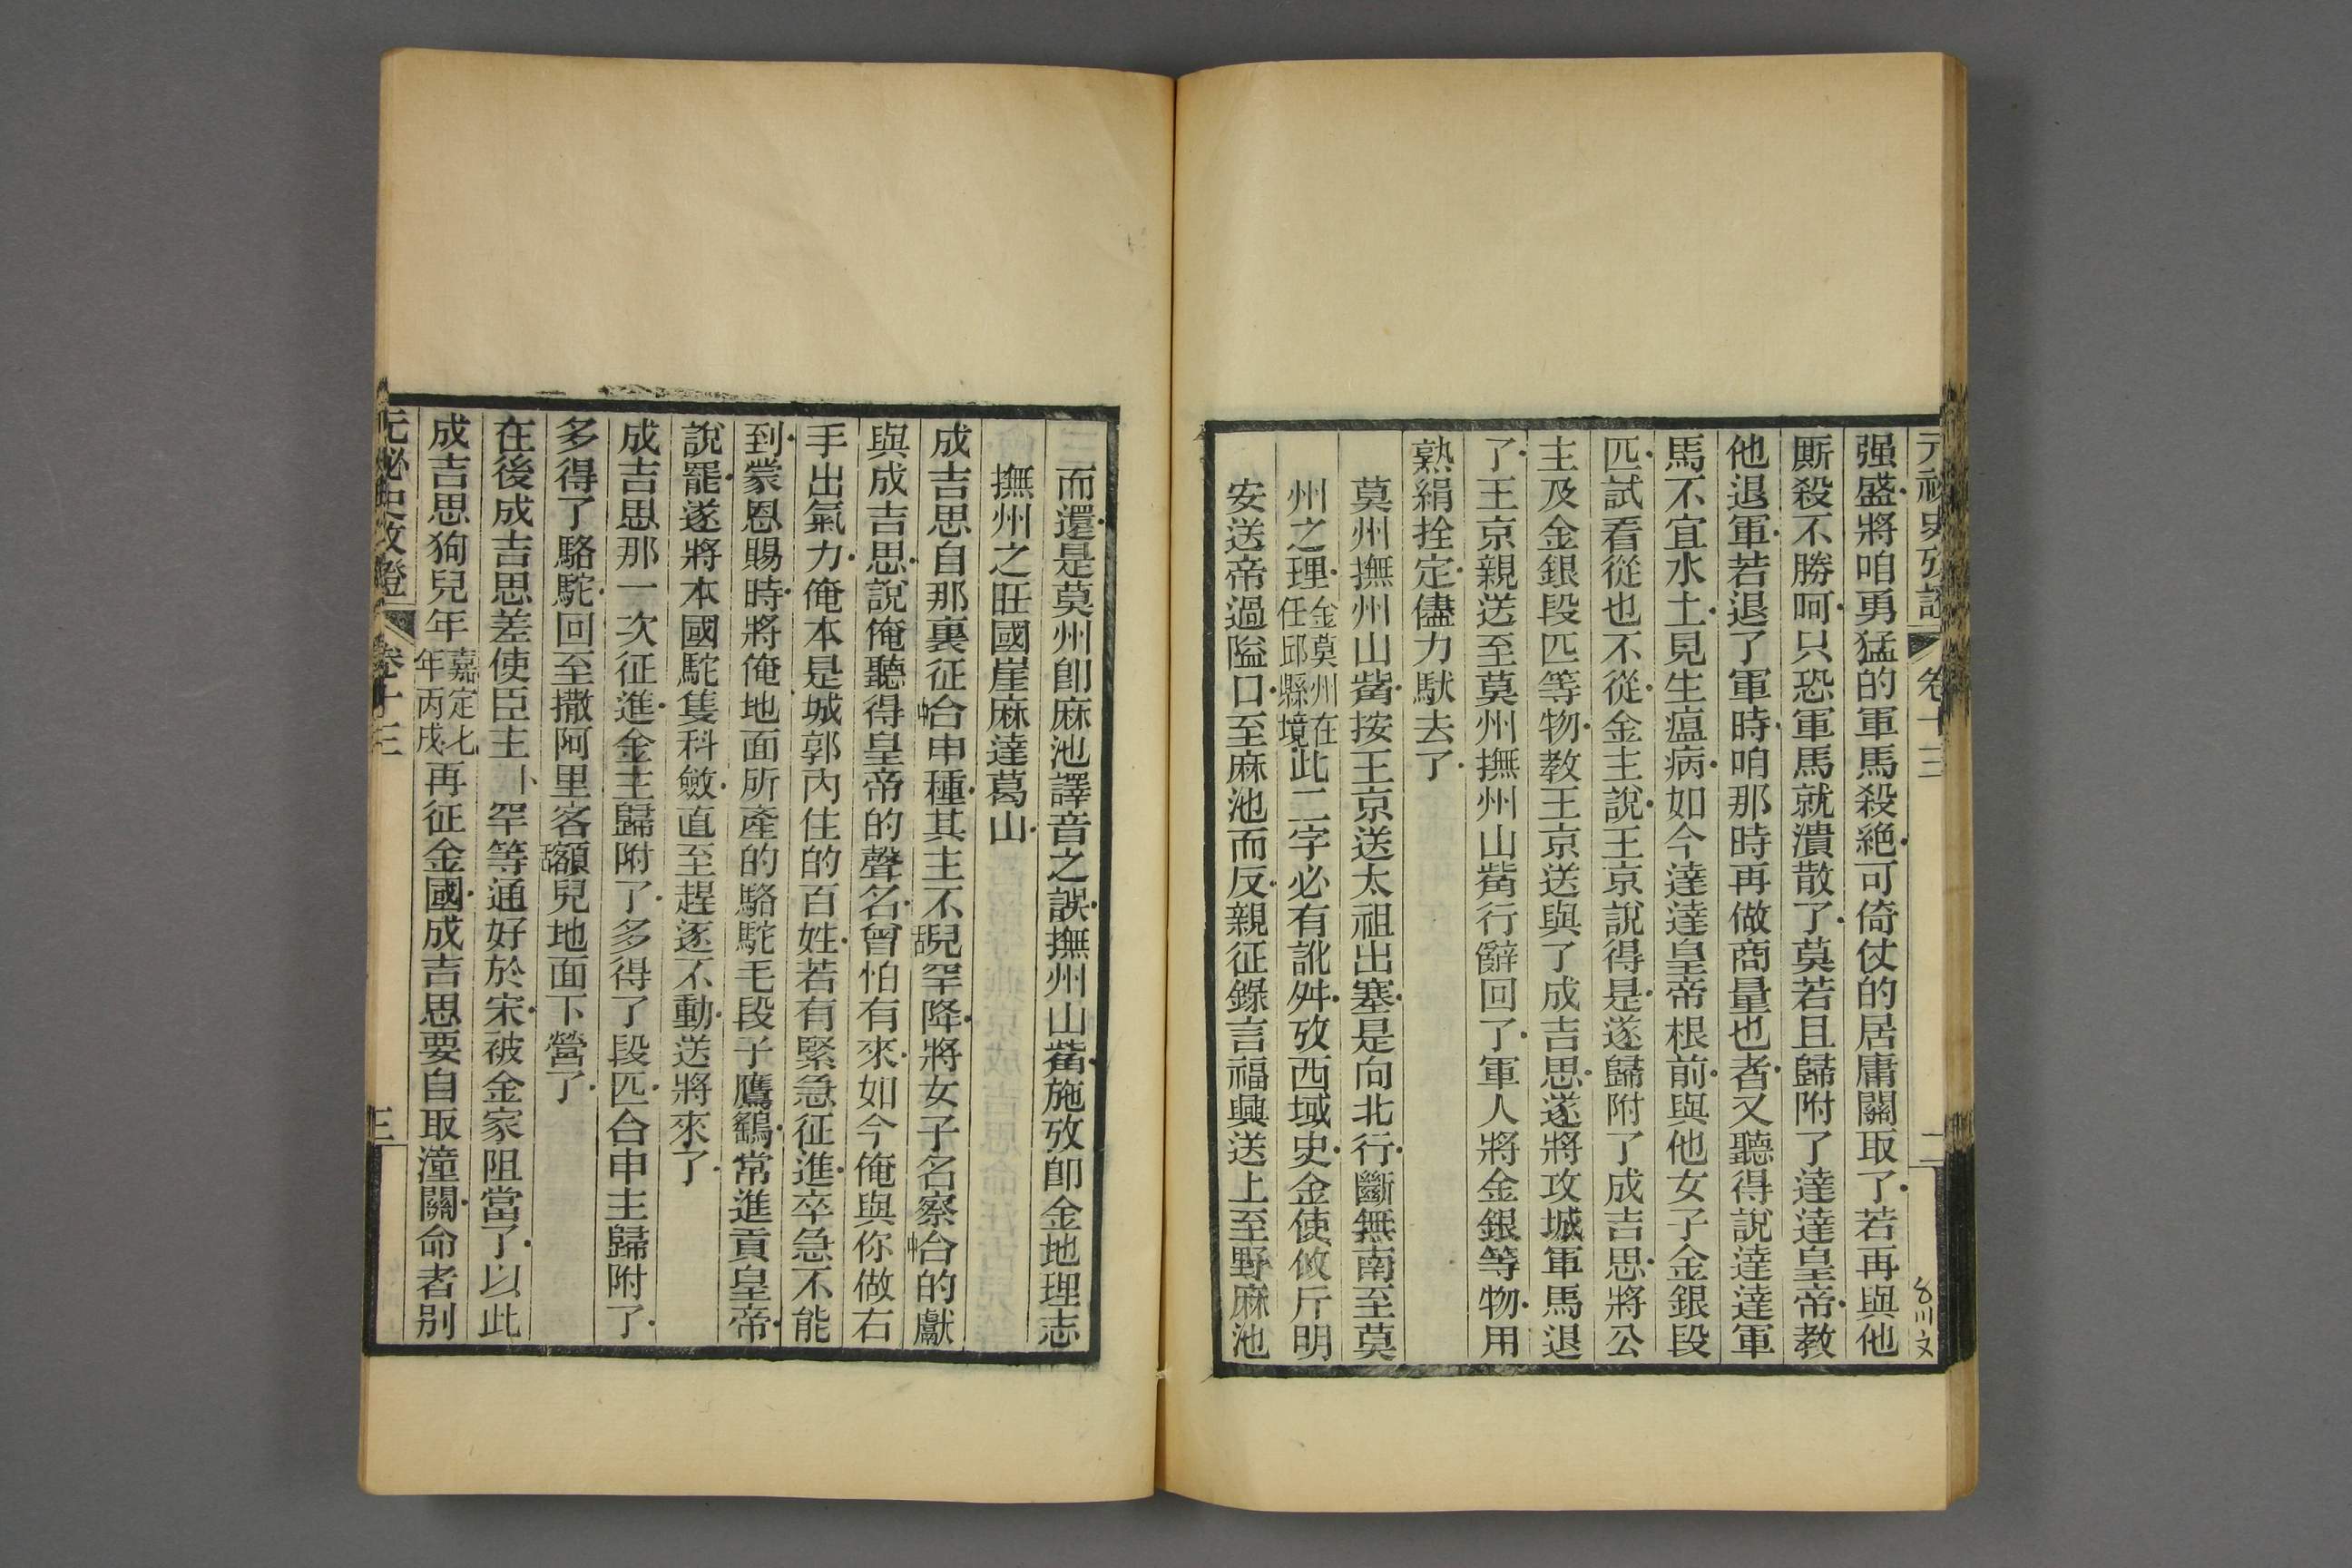 元祕史攷證 卷十三 二
强盛將咱勇猛的軍馬殺絶可倚仗的居庸關取了若再與他
厮殺不勝呵只恐軍馬就潰散了莫若且歸附了達達皇帝教
他退軍若退了軍時咱那時再做商量也者又聽得說達達軍
馬不宜水土見生瘟病如今達達皇帝根前與他女子金銀段
匹試看從也不從金主說王京說得是遂歸附了成吉思將公
主及金銀段匹等物教王京送與了成吉思遂將攻城軍馬退
了王京親送至莫州撫州山觜行辭回了軍人將金銀等物用
熟絹拴定儘力馱去了
莫州撫州山觜按王京送太祖出塞是向北行斷無南至莫
州之理金莫州在任邱縣境此二字必有訛舛攷西域史金使攸斤明
安送帝過隘口至麻池而反親征錄言福興送上至野麻池
而還是莫州卽麻池譯音之誤撫州山觜施攷卽金地理志
撫州之旺國崖麻達葛山
成吉思自那裏征中合申種其主不舌兒罕降將女子名察中合的獻
與成吉思說俺聽得皇帝的聲名曾怕有來如今俺與你做右
手出氣力俺本是城郭內住的百姓若有緊急征進卒急不能
到蒙恩賜時將俺地面所產的駱駝毛段子鷹鷂常進貢皇帝
說罷遂將本國駝隻科斂直至趕逐不動送將來了
成吉思那一次征進金主歸附了多得了段匹合申主歸附了
多得了駱駝回至撒阿里客額舌兒地面下營了
在後成吉思差使臣主卜罕等通好於宋被金家阻當了以此
成吉思狗兒年嘉定七年丙戌再征金國成吉思要自取潼關命者别
元祕史攷證 卷十三 三